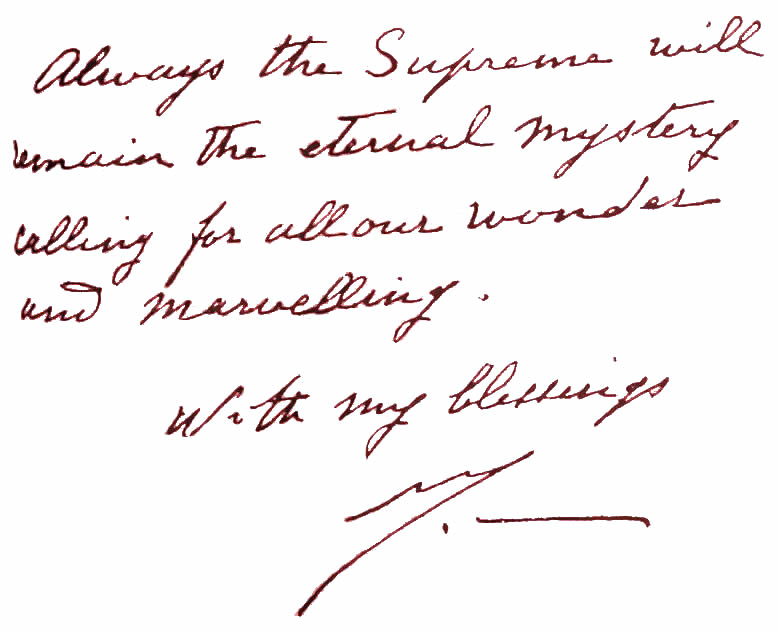 Always the Supreme will
remain the eternal mystery
calling for all our wonder
and marvelling.
With my blessings